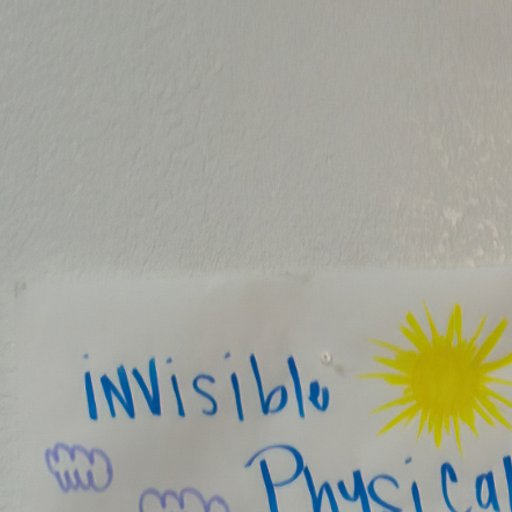 invisible
Physical